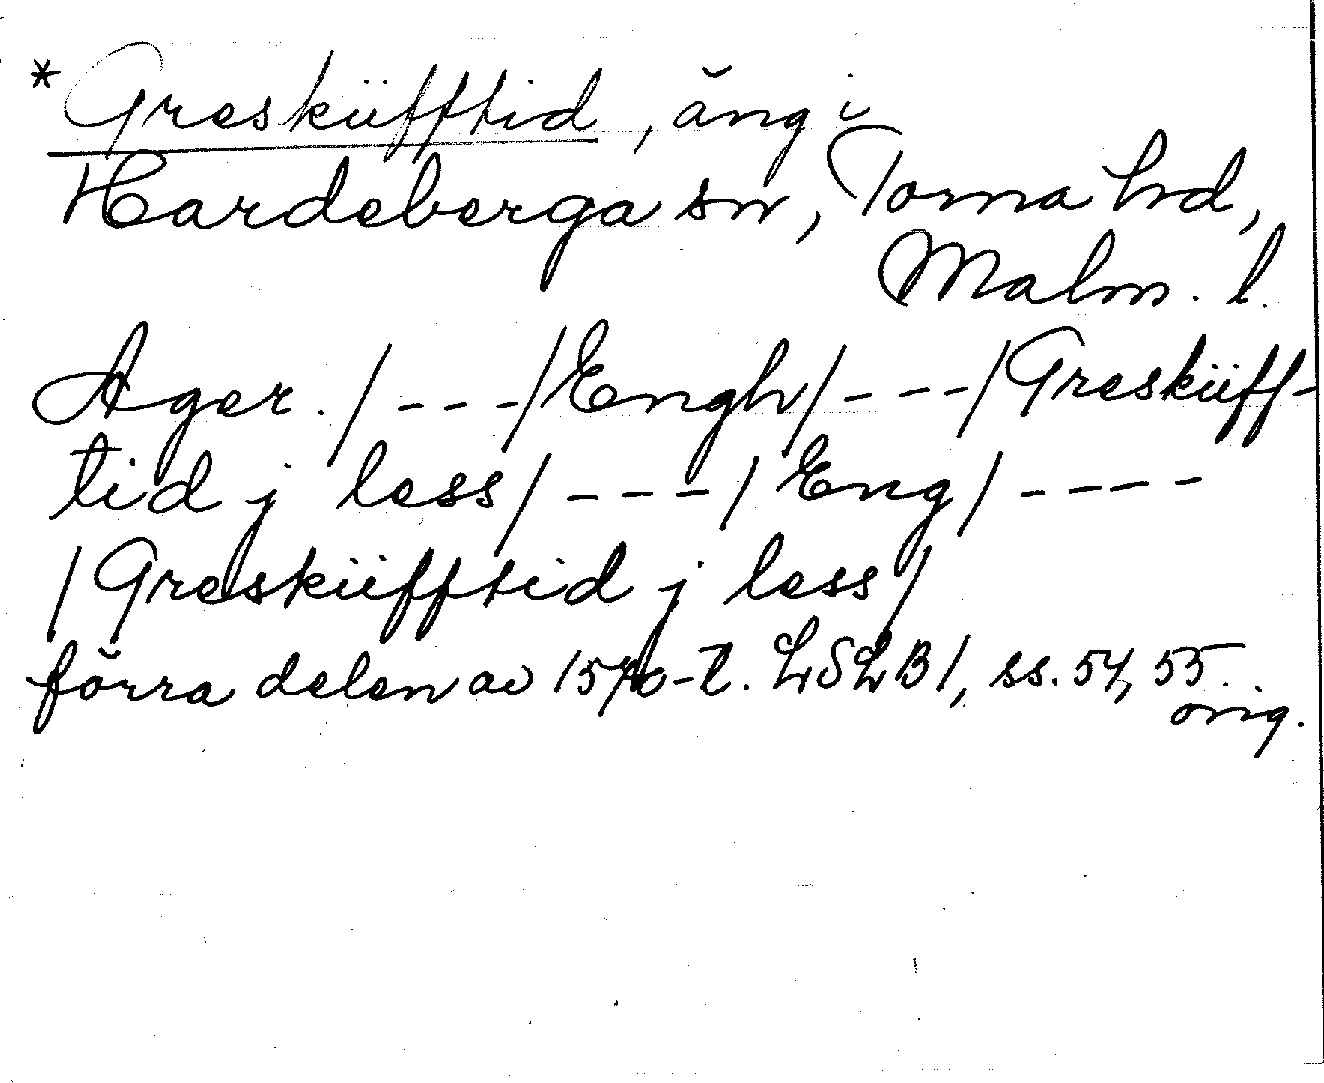 * Gresküfftid, äng i
Hardeberga sn, Torna hd,
Malm. l.
Ager. / - - - / Engh / - - - / Gresküff-
tid j less / - - - / Eng / - - - -
/ Gresküfftid j less /
förra delen av 1570-t. LSLB 1, ss. 54, 55
orig.